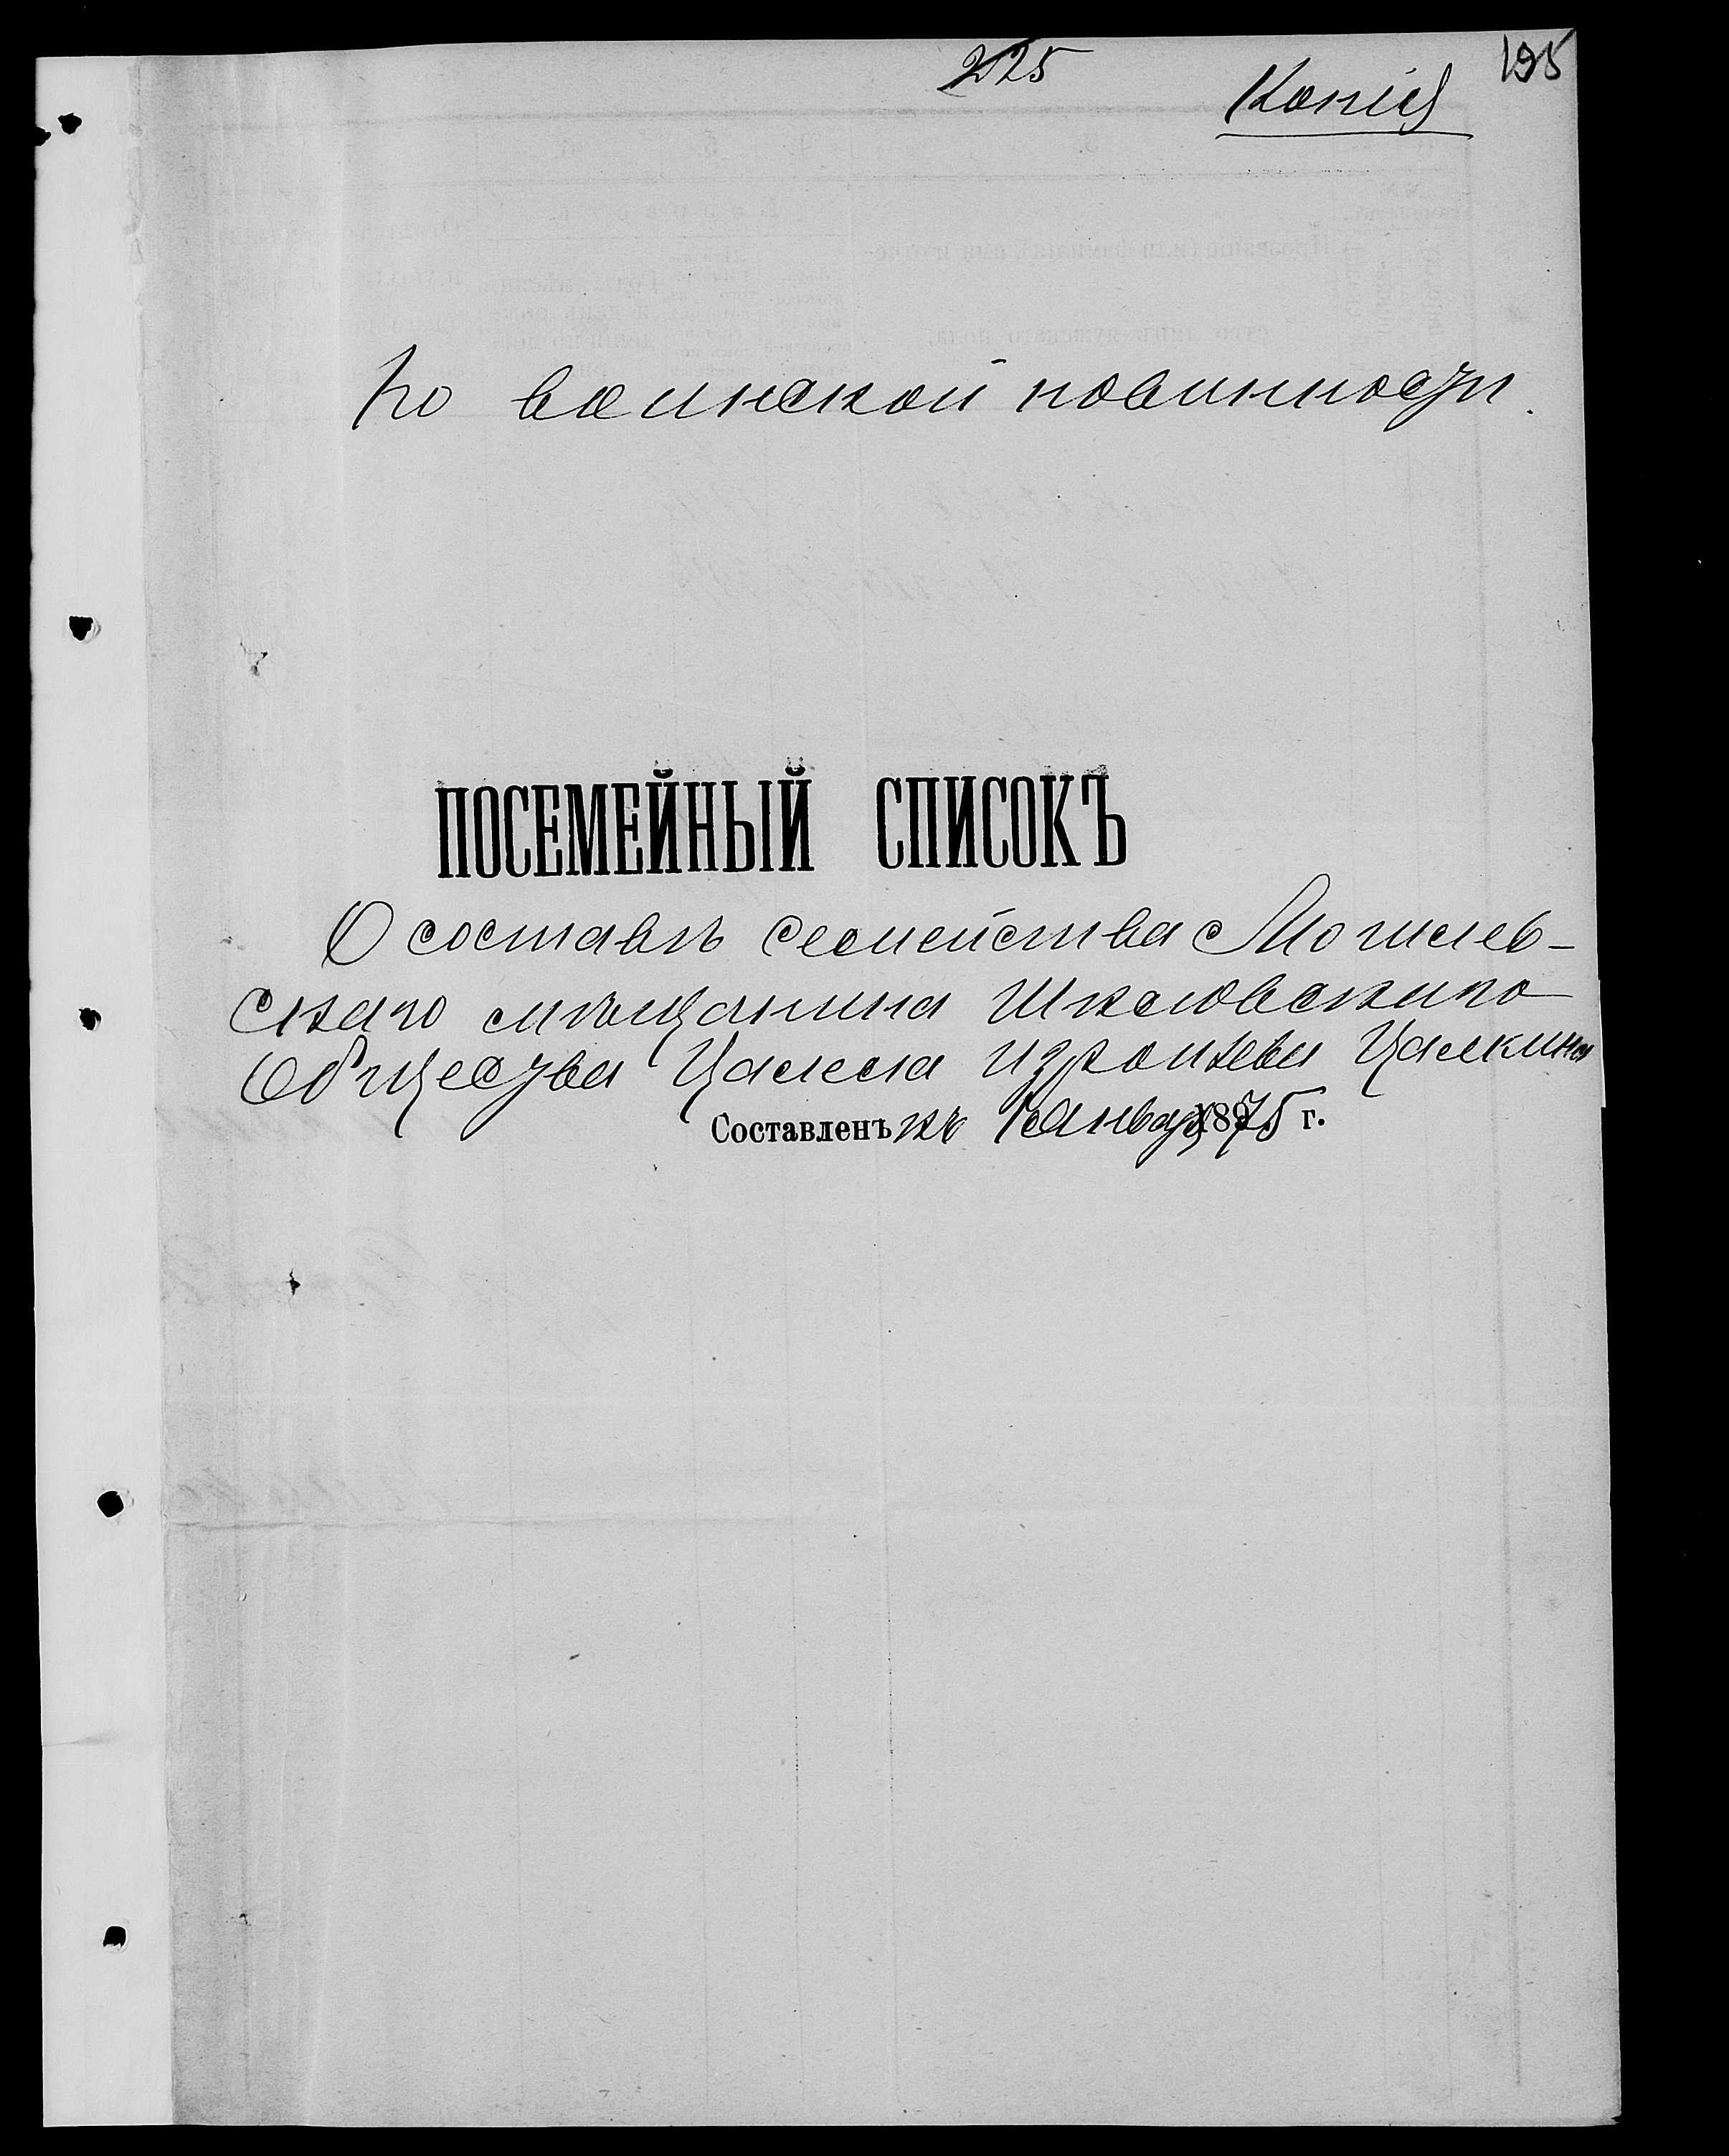 225
195
Копія
По воинской повинности.
ПОСЕМЕЙНЫЙ СПИСОКЪ
О составѣ семейства Могилев-
скаго мѣщанина Шкловскаго
Общества Цалела Израилева Цалкина
Составленъ къ 1 Января 1875 г.